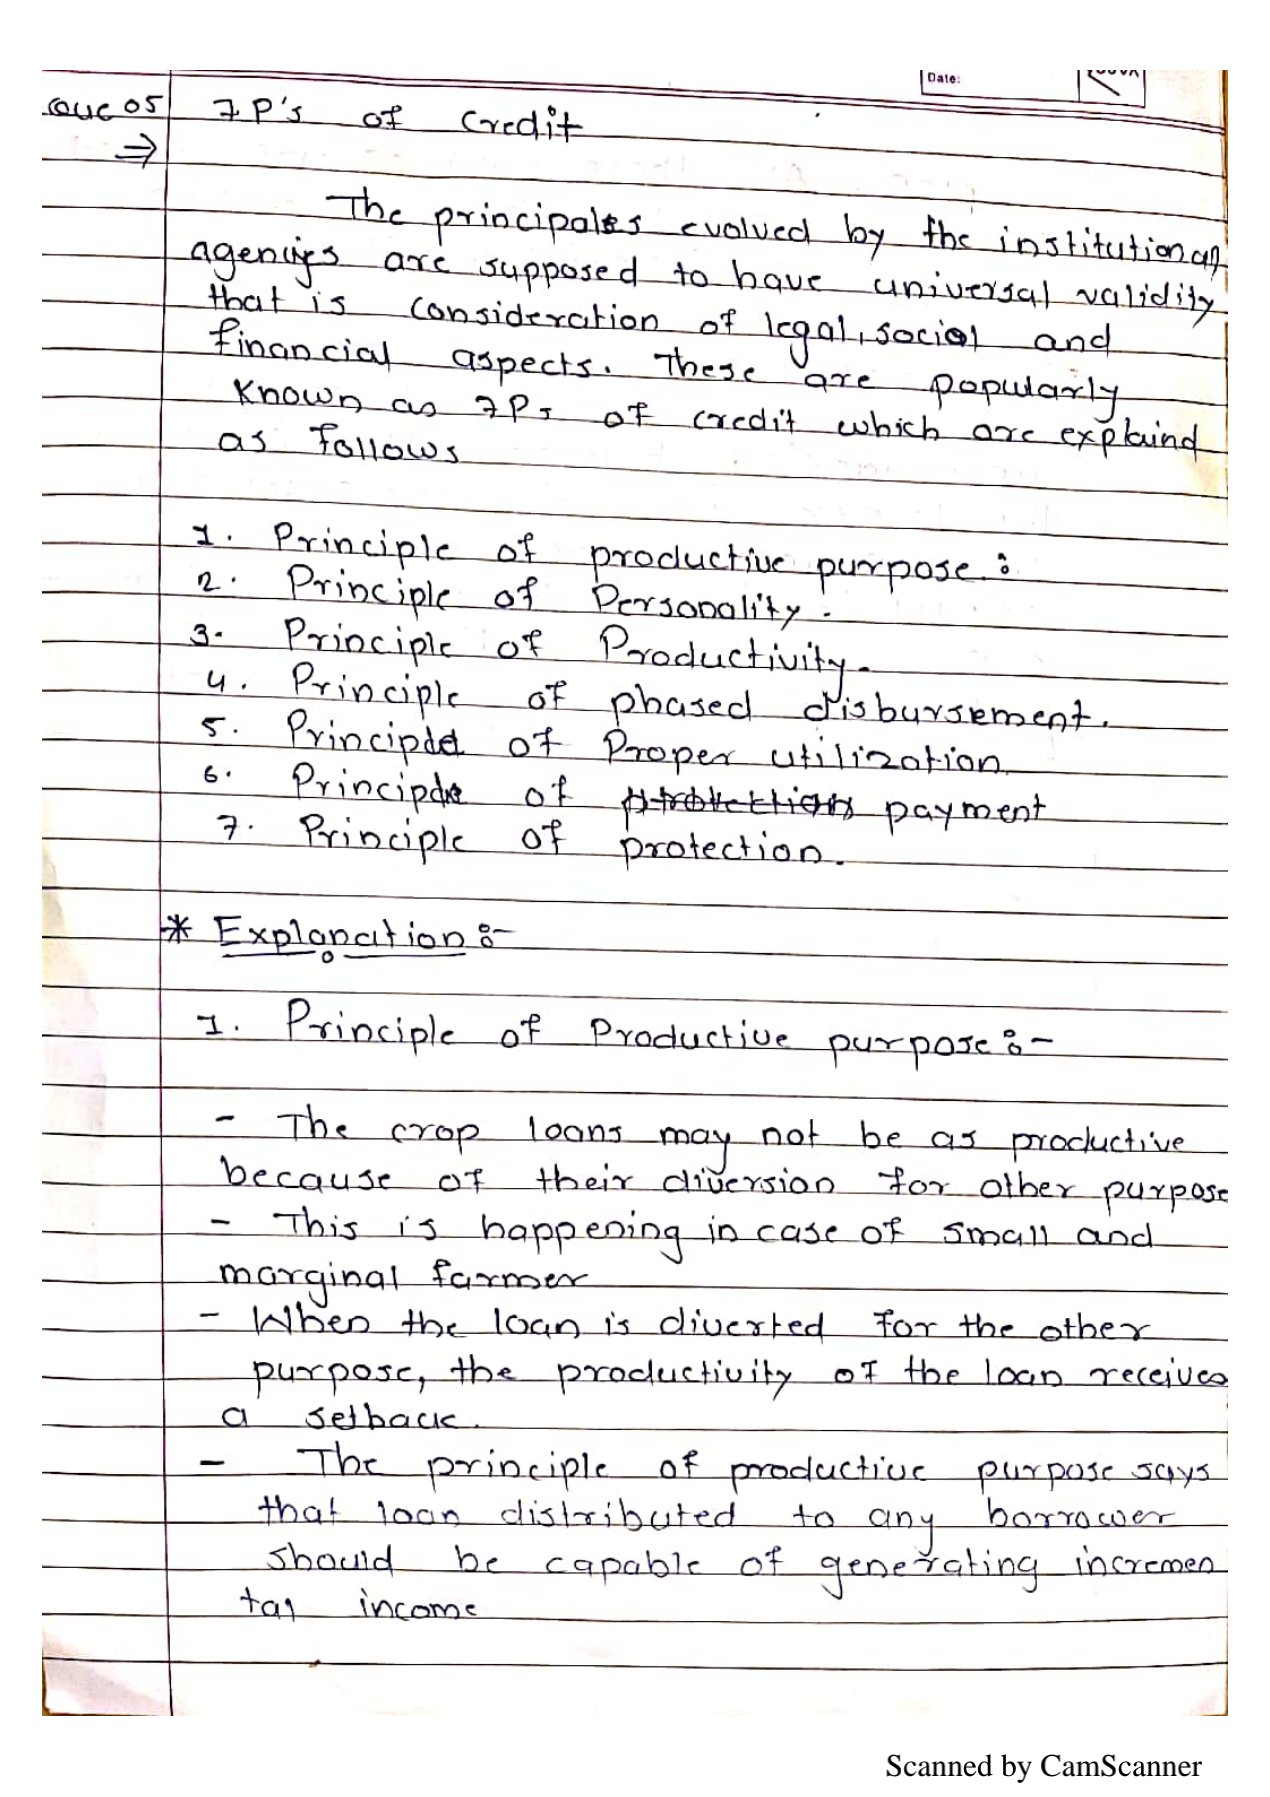 Date:
Que 05 7 P's of Credit
⇒
The principales evolved by the institutional
agencies are supposed to have universal validity
that is consideration of legal, social and
financial aspects. These are popularly
known as 7Ps of credit which are explaind
as follows
1. Principle of productive purpose :
2. Principle of Personality.
3. Principle of Productivity.
4. Principle of phased disbursement.
5. Principle of Proper utilization
6. Principle of protections payment
7. Principle of protection.
* Explanation :-
1. Principle of Productive purpose :-
- The crop loans may not be as productive
because of their diversion for other purpose
- This is happening in case of small and
marginal farmer
- When the loan is diverted for the other
purpose, the productivity of the loan receives
a setback.
- The principle of productive purpose says
that loan distributed to any borrower
should be capable of generating incremen
tal income
Scanned by CamScanner